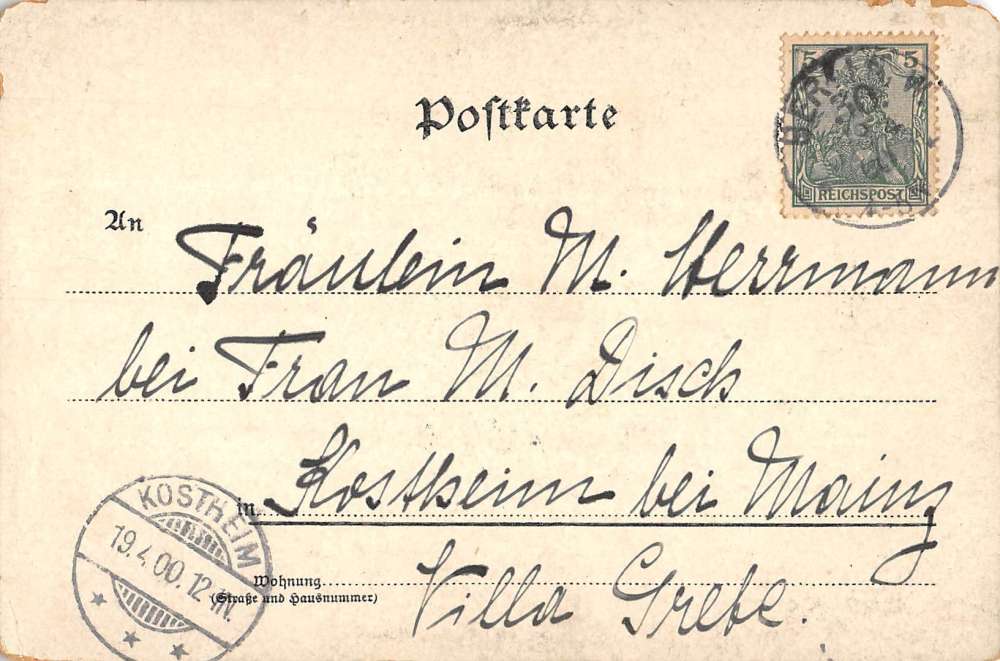 Postkarte
5 5
REICHSPOST
BERLIN, W.
An
Fräulein M. Herrmann
bei Frau M. Disch
in Kostheim bei Mainz
Wohnung
(Straße und Hausnummer)
Villa Grebe.
KOSTHEIM
19.4.00.12-1N.